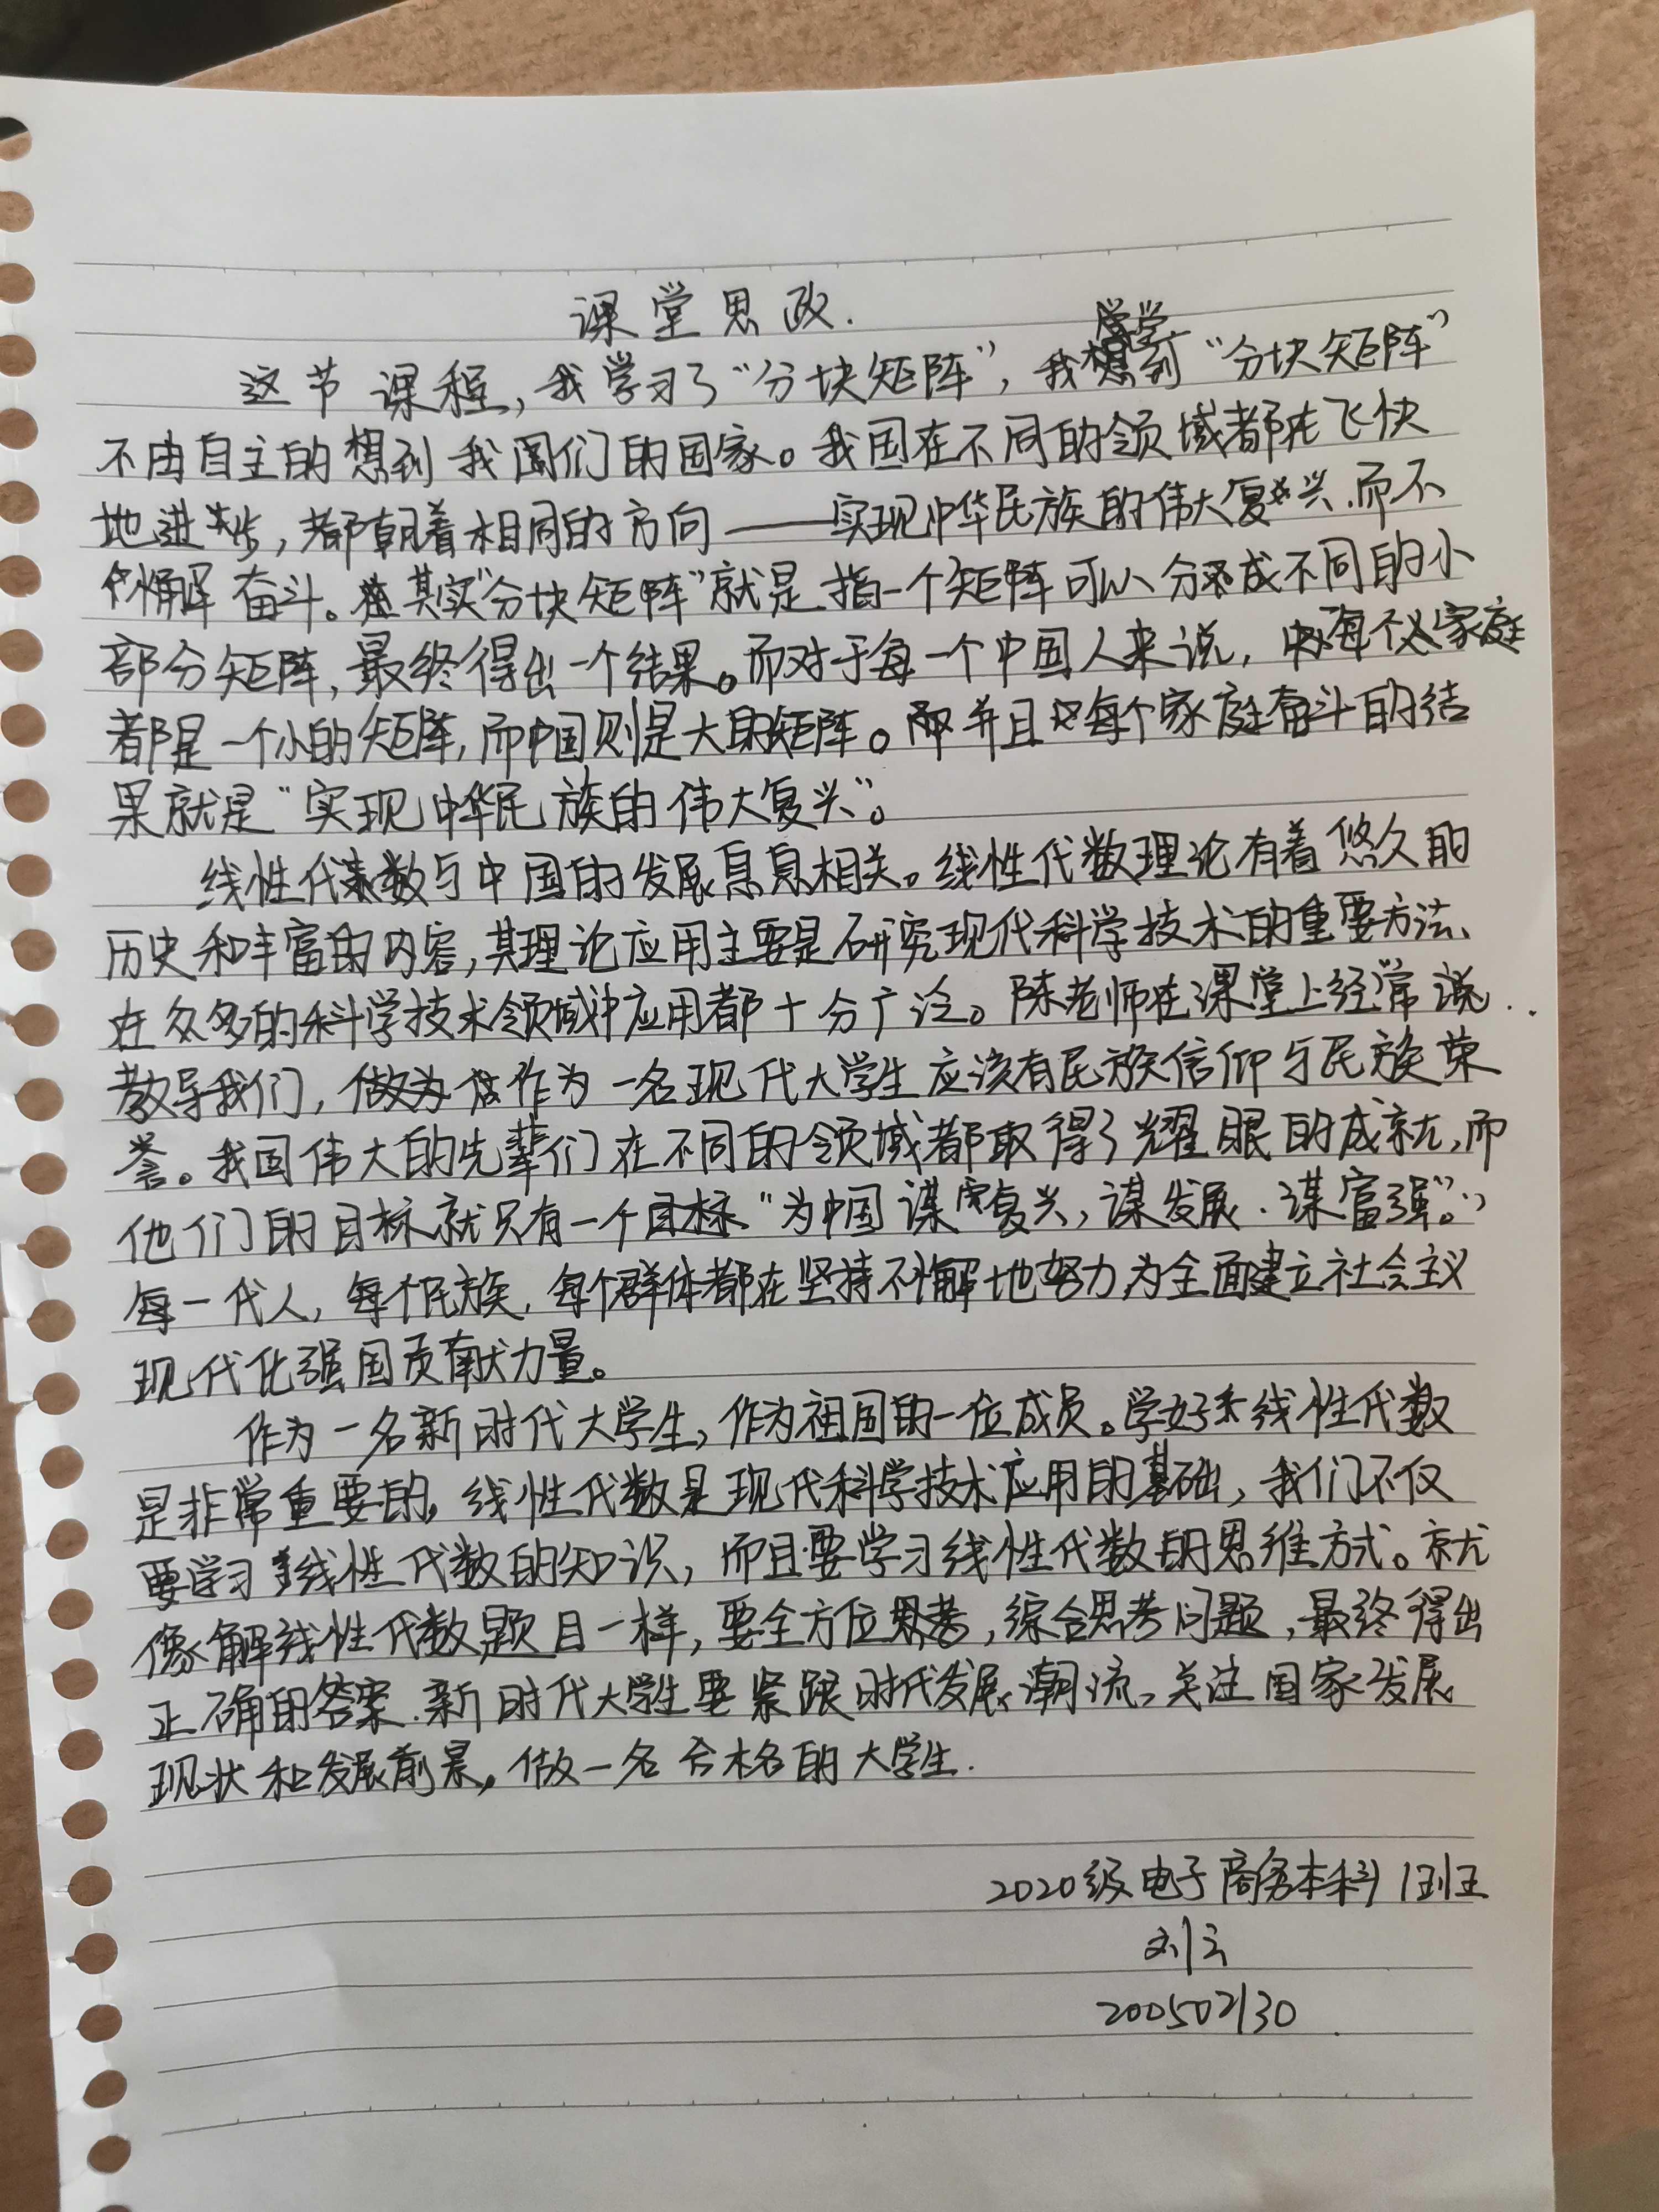 课堂思政.
这节课程,我学习了“分块矩阵”,我学到“分块矩阵”
不由自主的想到我们的国家。我国在不同的领域都在飞快
地进步,都朝着相同的方向——实现中华民族的伟大复兴.而不
懈奋斗。其实“分块矩阵”就是指一个矩阵可以分成不同的小
部分矩阵,最终得出一个结果。而对于每一个中国人来说,每个家庭
都是一个小的矩阵,而中国则是大的矩阵。并且每个家庭奋斗的结
果就是“实现中华民族的伟大复兴”。
线性代数与中国的发展息息相关。线性代数理论有着悠久的
历史和丰富的内容,其理论应用主要是研究现代科学技术的重要方法、
在众多的科学技术领域中应用都十分广泛。陈老师在课堂上经常说..
教导我们,作为一名现代大学生应该有民族信仰与民族荣
誉。我国伟大的先辈们在不同的领域都取得了耀眼的成就,而
他们的目标就只有一个目标“为中国谋复兴,谋发展.谋富强。”
每一代人,每个民族,每个群体都在坚持不懈地努力为全面建立社会主义
现代化强国贡献力量。
作为一名新时代大学生,作为祖国的一位成员。学好线性代数
是非常重要的,线性代数是现代科学技术应用的基础,我们不仅
要学习线性代数的知识,而且要学习线性代数的思维方式。就
像解线性代数题目一样,要全方位思考,综合思考问题,最终得出
正确的答案.新时代大学生要紧跟时代发展潮流,关注国家发展
现状和发展前景,做一名合格的大学生.
2020级电子商务本科1班
刘云
200502130